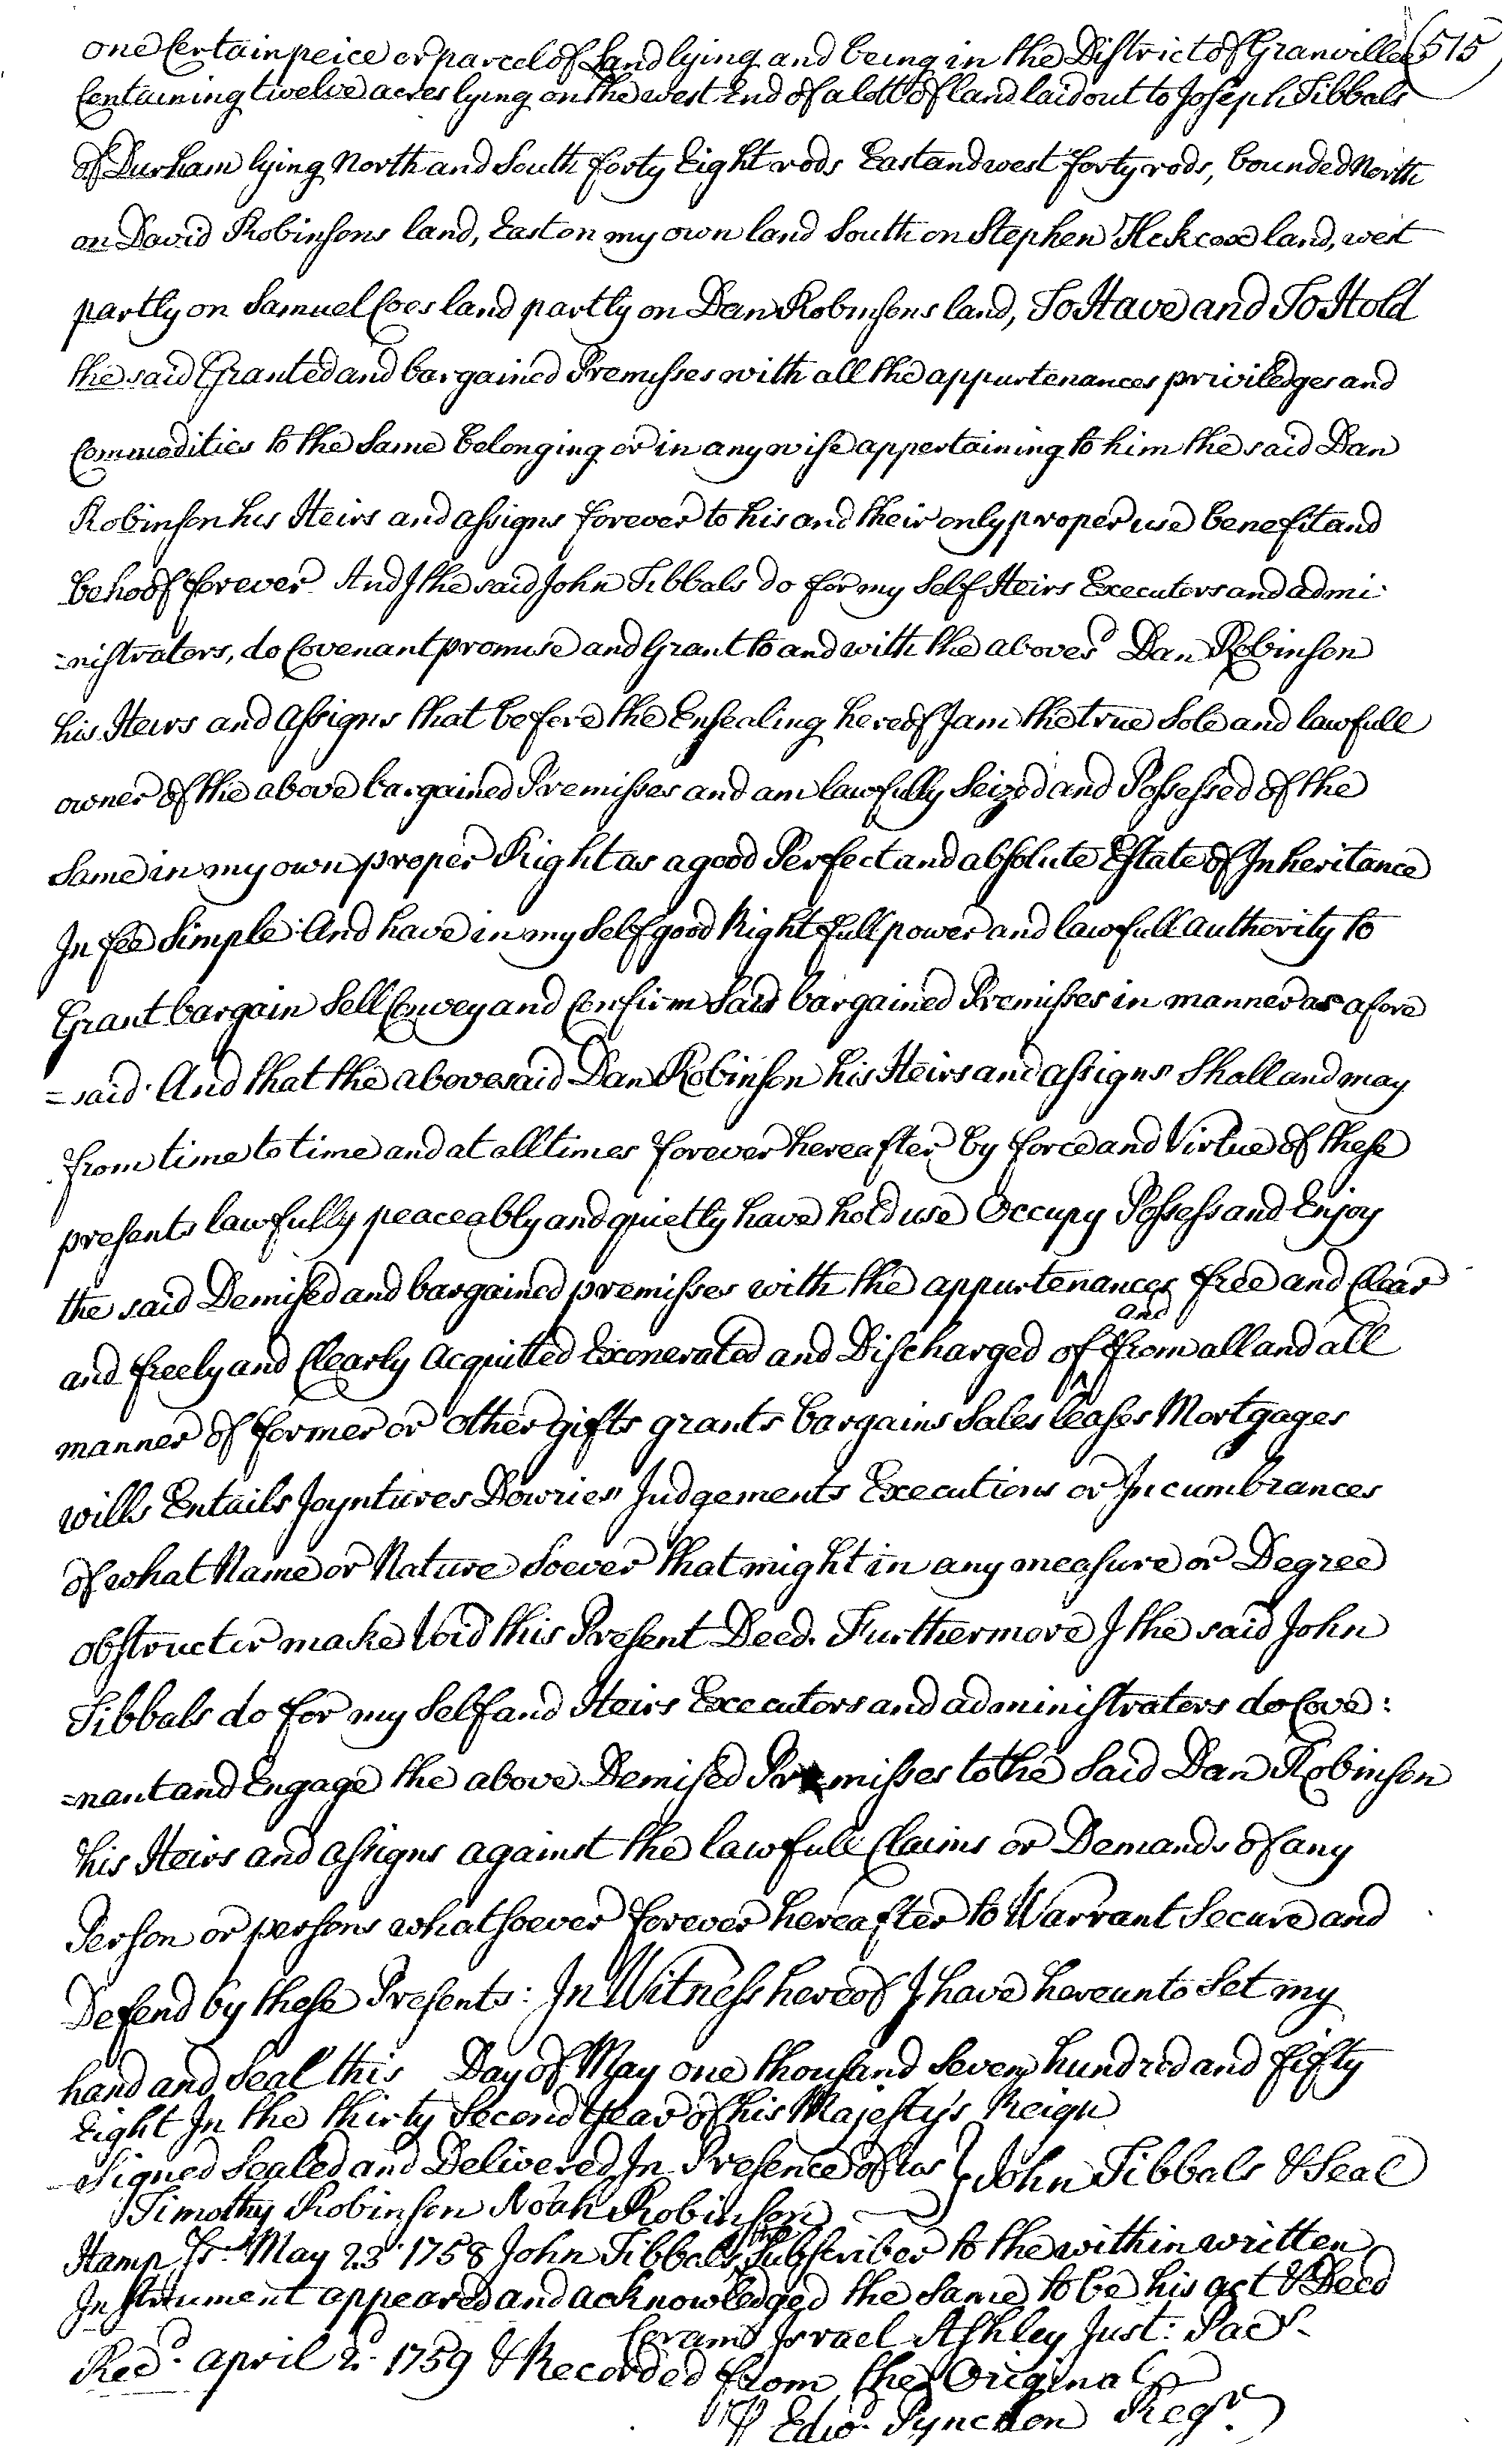 one Certain peice or parcel of Land lying and being in the District of Granville 515
Containing twelve acres lying on the west End of a lott of land laid out to Joseph Tibbals
of Durham lying North and South forty Eight rods East and west forty rods, bounded North
on David Robinsons land, East on my own land South on Stephen Hickcox land, west
partly on Samuel Coes land partly on Dan Robinsons land, To Have and To Hold
the said Granted and bargained Premisses with all the appurtenances priviledges and
Commodities to the Same belonging or in any wise appertaining to him the said Dan
Robinson his Heirs and assigns forever to his and their only proper use benefit and
behoof forever And I the said John Tibbals do for my Self Heirs Executors and admi
=nistrators, do Covenant promise and Grant to and with the aboves.d Dan Robinson
his Heirs and assigns that before the Ensealing hereof I am the true Sole and lawfull
owner of the above bargained Premisses and am lawfully Seized and Possessed of the
Same in my own proper Right as a good Perfect and absolute Estate of Inheritance
In fee Simple And have in my Self good Right full power and lawfull authority to
Grant bargain Sell Convey and Confirm Said bargained Premisses in manner as afore
=said And that the abovesaid Dan Robinson his Heirs and assigns Shall and may
from time to time and at all times forever hereafter by force and Virtue of these
presents lawfully peaceably and quietly have hold use Occupy Possess and Enjoy
the said Demised and bargained premisses with the appurtenances free and Clear
and freely and Clearly acquitted Exonerated and Discharged of and from all and all
manner of former or other gifts grants bargains Sales leases Mortgages
wills Entails Joyntures Dowries Judgements Executions or Incumbrances
of what Name or Nature Soever that might in any measure or Degree
obstruct or make Void this Present Deed. Furthermore I the said John
Tibbals do for my Self and Heirs Executors and administrators do Cove:
=nant and Engage the above Demised Premisses to the Said Dan Robinson
his Heirs and assigns against the lawfull Claims or Demands of any
Person or persons whatsoever forever hereafter to Warrant Secure and
Defend by these Presents: In Witness hereof I have hereunto Set my
hand and Seal this Day of May one thousand Seven hundred and fifty
Eight In the thirty Second Year of his Majesty's Reign
Signed Sealed and Delivered In Presence of us } John Tibbals & Seal
Timothy Robinson Noah Robinson
Hamp Ss. May 23 1758 John Tibbals the Subscriber to the within written
Instrument appeared and acknowledged the Same to be his act & Deed
Coram Israel Ashley Just: Pacs.
Rec.d april 2. 1759 & Recorded from the Original
P Edw.d Pynchon Reg.r